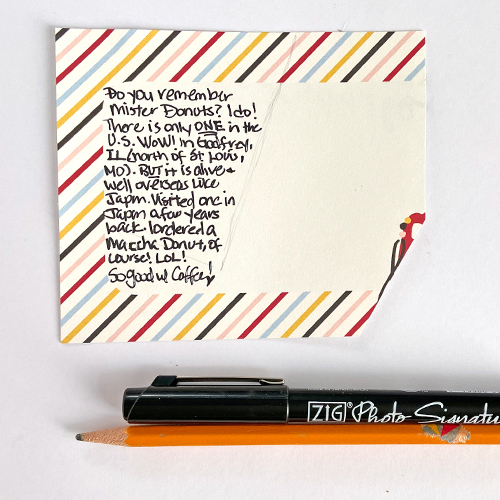 Do you remember
Mister Donuts? I do!
There is only ONE in the
U.S. WOW! in Godfrey,
IL (north of St Louis,
MO). BUT it is alive +
well overseas like
Japan. Visited one in
Japan a few years
back. I ordered a
Matcha Donut, of
course! LOL!
So good w/ Coffee!
ZIG® Photo Signatu